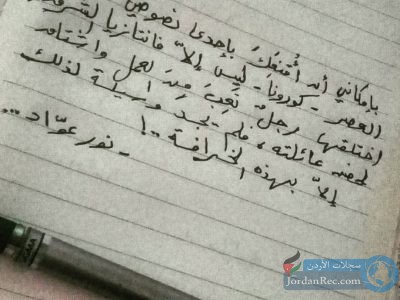 بإمكاني أن أُقنعَكَ بإحدى نصوصي
العصر - كورونا - ليس إلاّ فانتازيا
اختلقها رجلٌ تَعِبَ مِنَ العمل واشتاق
لحضن عائلته، فلم يجد وسيلة لذلك
إلاّ بهذه الخرافة..!
- نور عوّاد...
سجلات الأردن
JordanRec.com